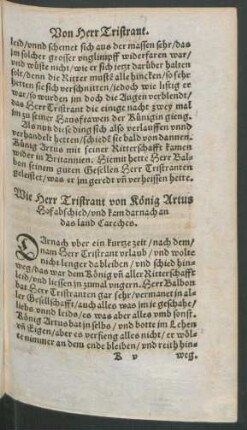 Von Herr Tristrant.
leid/vnnd schemet sich aus der massen sehr/das
jm solcher grosser vnglimpff widerfaren war/
vnd wüste nicht/wie er sich jetzt darüber halten
solt/denn die Ritter musté alle hincken/so sehr
hetten sie sich verschnitten/jedoch wie listig er
war/so wurden jm doch die Augen verblendt/
das Herr Tristrant die einige nacht zwey mal
jm zu seiner Hausfrawen der Künigin gieng.
Als nun diese ding sich also verlauffen vnnd
verhandelt hetten/schiedt sie bald von dannen/
Künig Artus mit seiner Ritterschafft kamen
wider in Britannien. Hiemit hette Herr Bal-
bon seinem guten Gesellen Herr Tristranten
geleistet/was er jm geredt vñ verheissen hette.
Wie Herr Tristrant von König Artus
Hof abschied/vnd kam darnach an
das land Careches.
DArnach vber ein kurtze zeit/nach dem/
nam Herr Tristrant vrlaub/vnd wolte
nicht lenger da bleiben/vnd schied hin-
weg/das war dem König vñ aller Ritterschafft
leid/vnd liessen jn zumal vngern. Herr Balbon
bat Herr Tristranten gar sehr/vermanet in al-
ler Gesellschafft/auch alles was im ie geschahe/
lieb vnnd leids/es was aber alles vmb sonst.
König Artus bat jn selbs/vnd botte im Lehen
vñ Eigen/aber es verfieng alles nicht/er wöl-
te nimmer an dem ende bleiben/vnd reith hin-
K v weg.